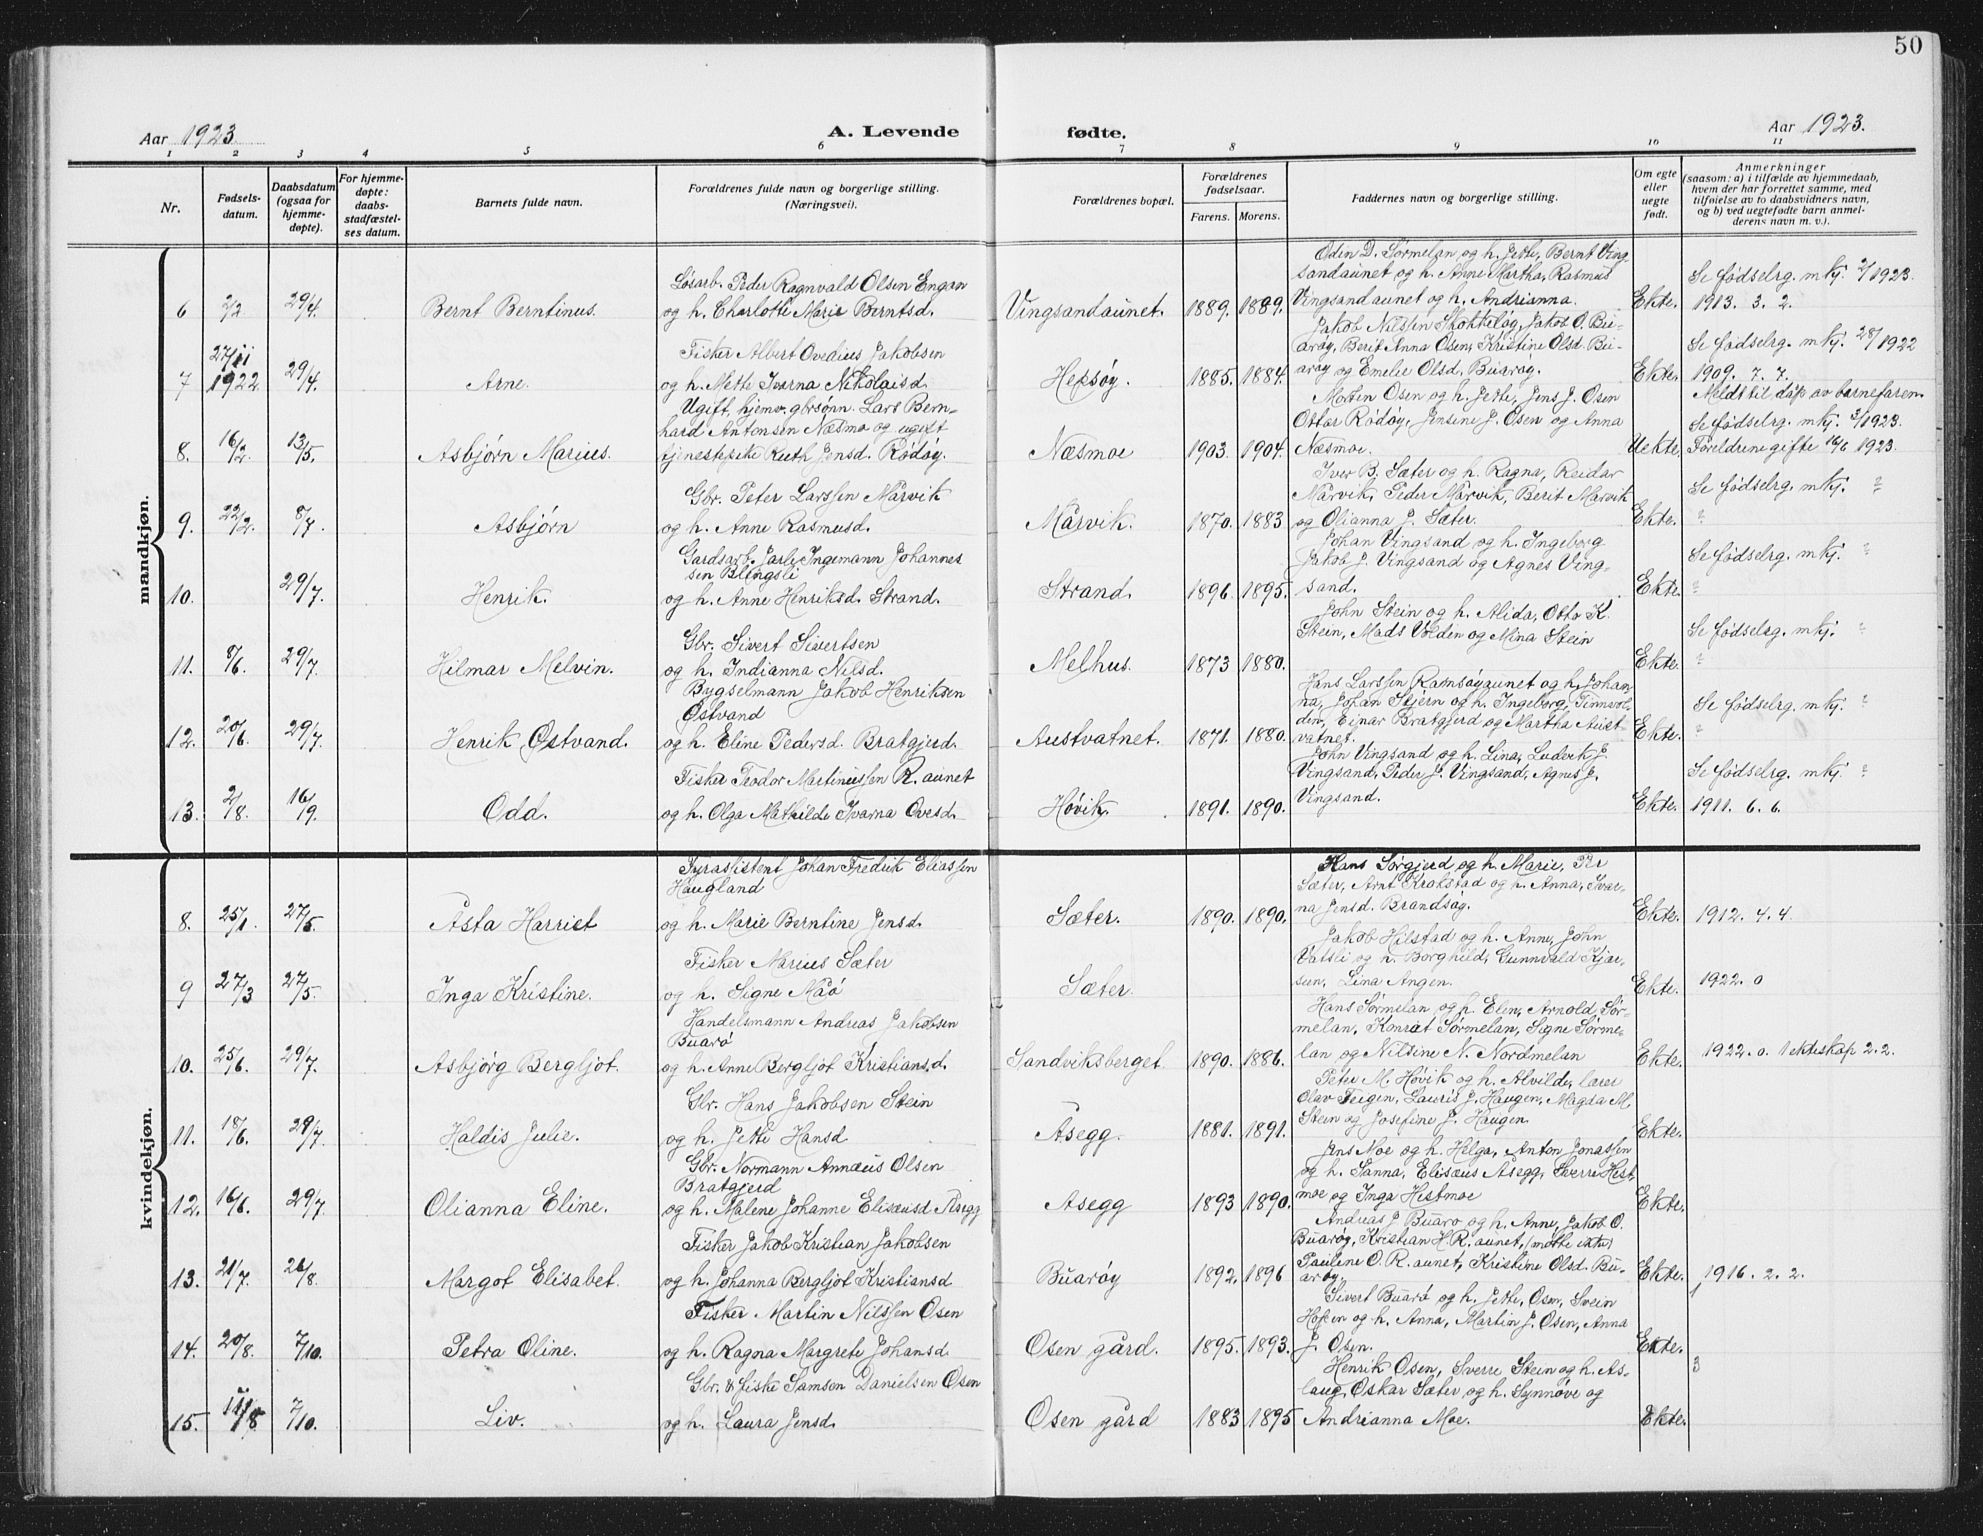 50
Aar 1923
A. Levende fødte.
Aar 1923.
1 2 3 4 5 6 7 8 9 10 11
Nr.
Fødsels-
datum.
Daabsdatum
(ogsaa for
hjemme-
døpte).
For hjemme-
døpte:
daabs-
stadfæstel-
ses datum.
Barnets fulde navn.
Forældrenes fulde navn og borgerlige stilling.
(Næringsvei).
Forældrenes bopæl.
Forældrenes
fødselsaar.
Farens. Morens.
Faddernes navn og borgerlige stilling.
Om egte
eller
uegte
født.
Anmerkninger
(saasom: a) i tilfælde av hjemmedaab,
hvem der har forrettet samme, med
tilføielse av to daabsvidners navn,
og b) ved uegtefødte barn anmel-
derens navn m. v.).
mandkjøn.
6 2/2 29/4. Bernt Berntinus.
Løsarb. Peder Ragnvald Olsen Engan
og h. Charlotte Marie Berntsd.
Vingsandaunet. 1889. 1889.
Oden D. Sørmelan og h. Jette, Bernt Ving-
sandaunet og h. Anne Martha, Rasmus
Vingsandaunet og h. Andrianna.
Ekte.
Se fødselrg. mkj. 2/1923.
1913. 3. 2.
7 27/11 1922 29/4. Arne.
Fisker Albert Ovedius Jakobsen
og h. Mette Ivarna Nikolaisd.
Hepsøy. 1885. 1884.
Jakob Nilssen Skokkeløy, Jakob O. Bu-
arøy, Berit Anna Osen, Kristine Olsd. Bu-
arøy og Emelie Olsd. Buarøy.
Ekte.
Se fødselrg. mkj. 28/1922
1909. 7. 7.
8. 16/2 13/5. Asbjørn Marius.
Ugift, hjemv. gbrsønn. Lars Bern-
hard Antonsen Næsmo og ugift
tjenestepike Ruth Jensd. Rødøy.
Næsmoe 1903. 1904.
Morten Osen og h. Jette, Jens J. Osen
Ottar Rødøy, Jensine J. Osen og Anna
Næsmoe.
Uekte.
Meldt til dåp av barnefaren.
Se fødselrg. mkj. 3/1923.
Foreldrene gifte 16/6 1923.
9. 22/2. 8/7 Asbjørn
Gbr. Peter Larssen Mårvik
og h. Anne Rasmusd.
Mårvik. 1870. 1883
Iver B. Sæter og h. Ragna, Reidar
Mårvik, Peder Mårvik, Berit Mårvik
og Olianna J. Sæter.
Ekte.
Se fødselrg. mkj. ?
?
10. 29/7. Henrik.
Gardsarb. Jarle Ingemann Johannes
sen Blengsli
og h. Anne Henriksd. Strand.
Strand. 1896. 1895.
Johan Vingsand og h. Ingeborg
Jakob J. Vingsand og Agnes Ving-
sand.
Ekte.
Se fødselrg. mkj. ?
?
11. 8/6. 29/7. Hilmar Melvin.
Gbr. Sivert Sivertsen
og h. Indianna Nilsd.
Melhus. 1873 1880.
John Stein og h. Alida, Otto K.
Stein, Mads Volden og Mina Stein
Ekte.
Se fødselrg. mkj. ?
?
12. 20/6. 29/7. Henrik Østvand.
Bygselmann Jakob Henriksen
Østvand
og h. Eline Pedersd. Bratgjerd.
Austvatnet. 1871. 1880.
Hans Larssen Ramsøyaunet og h. Johan
na, Johan Stjern og h. Ingeborg, Tinnvol-
den, Einar Bratgjerd og Martha Aust-
vatnet.
Ekte.
Se fødselrg. mkj. ?
?
13. 2/8. 16/9. Odd.
Fisker Teodor Martinussen R. aunet
og h. Olga Mathilde Ivarna Ovesd.
Høvik. 1891. 1890.
John Vingsand og h. Lina, Ludvik J
Vingsand, Peder J. Vingsand, Agnes J.
Vingsand.
Ekte.
Se fødselrg. mkj. ?
1911. 6. 6.
kvindekjøn.
8. 25/1. 27/5. Asta Harriet
Fyrassistent Johan Fredrik Eliassen
Haugland
og h. Marie Berntine Jensd.
Sæter. 1890. 1890.
Hans Sørgjerd og h. Marie, Per
Sæter, Arnt Krokstad og h. Anna, Ivar-
na Jensd. Brandsøy.
Ekte. 1912. 4. 4.
9 27/3 27/5. Inga Kristine.
Fisker Marius Sæter
og h. Signe
Sæter.
Jakob Hilstad og h. Anne, John
Vatsli og h. Borghild, Gunnvald Kjær-
Lina Angen.
Ekte. 1922. 0
10. 25/6. 29/7. Asbjørg Bergljot.
Handelsmann Andreas Jakobsen
Buarø
og h. Anne Bergljot Kristiansd.
Sandviksberget. 1890. 1886.
Hans Sørmelan og h. Elen, Arnold Sør-
melan, Konrat Sørmelan, Signe Sørme-
lan og Nilsine N. Nordmelan
Ekte. 1922. 0. 1 ekteskap 2. 2.
11. 18/6. 29/7. Haldis Julie.
Gbr. Hans Jakobsen Stein
og h. Jette Hansd
Åsegg. 1881. 1891.
Peter M. Høvik og h. Alvilde, lærer
Olav Teigen, Lauris J. Haugen, Magda M.
Stein og Josefine J. Haugen.
Ekte.
12. 16/6. 29/7. Olianna Eline.
Gbr. Normann Annæus Olsen
Bratgjerd
og h. Malene Johanne Elisæusd Åsegg
Asegg 1893 1890.
Jens Moe og h. Helga, Anton Jonassen
og h. Sanna, Elisæus Åsegg, Sverre Hest
moe og Inga Hestmoe
Ekte.
13. 21/7. 26/8. Margot Elisabet.
Fisker Jakob Kristian Jakobsen
og h. Johanna Bergljot Kristiansd
Buarøy 1892. 1896
Andreas J Buarø og h. Anne, Jakob O.
Buarøy, Kristian H. R. aunet, (møtte ikke)
Pauline O. R. aunet, Kristine Olsd. Bu-
arøy.
Ekte. 1916. 2. 2.
14. 20/8. 7/10. Petra Oline.
Fisker Martin Nilssen Osen
og h. Ragna Margrete Johansd
Osen gård. 1895. 1893.
Sivert Buarø og h. Jette, Osen, Svein
Hopen og h. Anna, Martin J. Osen, Anna
J. Osen.
Ekte. 3
15. 11/8 7/10. Liv.
Gbr. & fiske Samson Danielsen Osen
og h. Laura Jensd.
Osen gård 1883 1895
Henrik Osen, Sverre Stein og h. As-
laug, Oskar Sæter og h. Synnøve og
Andrianna Moe.
Ekte.